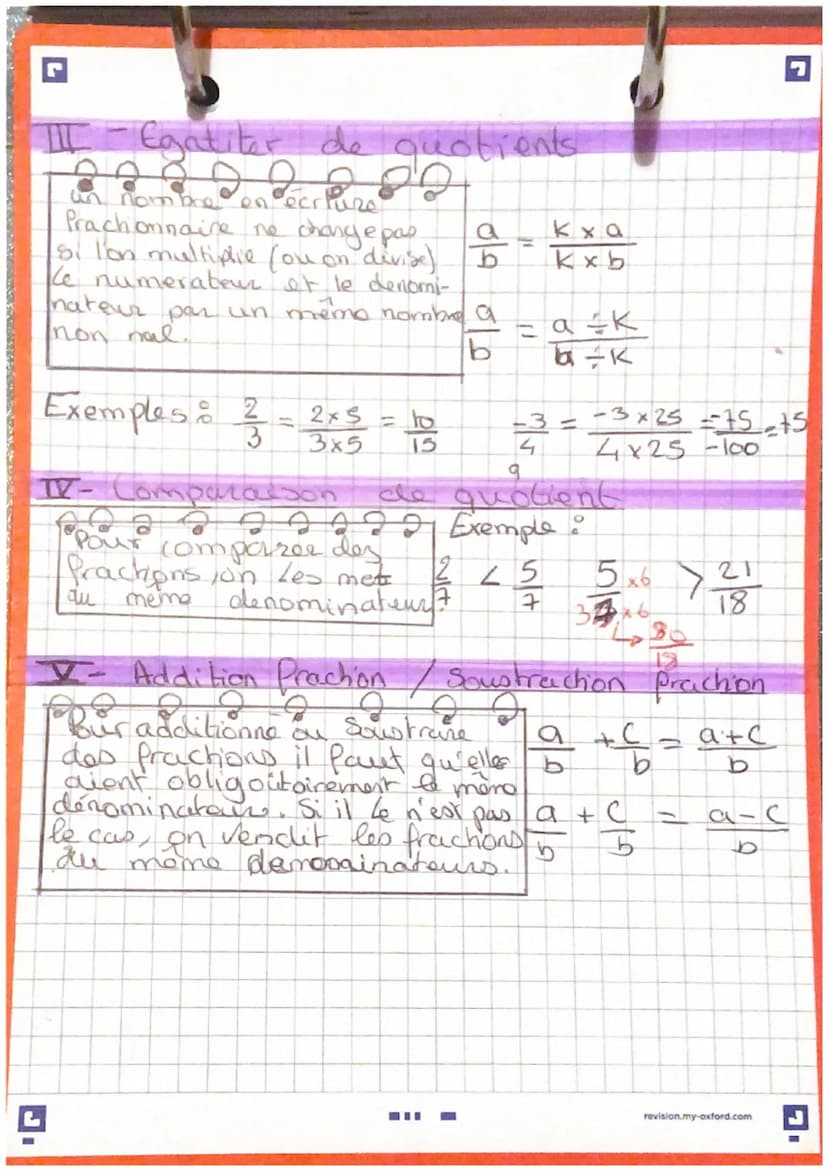 III - Egatiter de quotients
un nombre en écriture
frachonnaire ne change pas
si l'on multiplie (ou on divise)
le numerateur et le denomi-
nateur par un même nombre
non nul.
a/b = K × a / K × b
a/b = a ÷ K / b ÷ K
Exemples : 2/3 = 2×5 / 3×5 = 10/15
-3/4 = -3 × 25 / 4 × 25 = -75/-100 = 75
9
IV - Comparaison de quotient
Pour comparee des
frachons, on les met
du même denominateur
Exemple :
2/7 < 5/7
5 ×6 > 21/18
3 ×6
↳ 30/18
V - Addition frachion / Soustrachion frachion
Pour additionné ou soustraire
des frachions il faut qu'elles
aient obligoitoirement le même
dénominateur. Si il le n'est pas
le cas, on vendit les frachons
du même demoninateurs.
a/b + c/b = a+c / b
a/b + c/b = a-c / b
revision.my-oxford.com